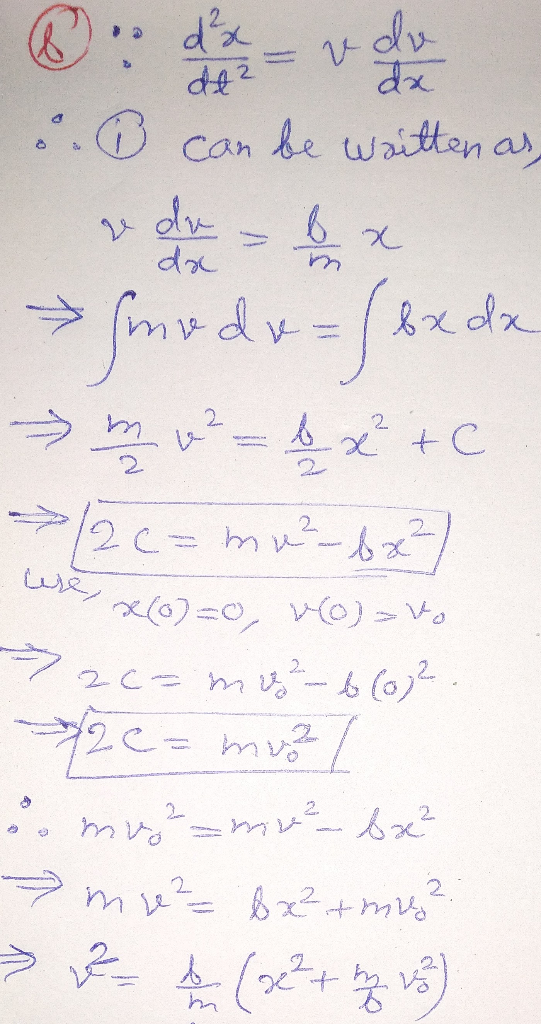 (b) ∵ d²x/dt² = v dv/dx
∴ (i) can be written as,
v dv/dx = b/m x
⇒ ∫mv dv = ∫bx dx
⇒ m/2 v² = b/2 x² + C
⇒ 2C = mv² - bx²
use, x(0)=0, v(0)=v₀
⇒ 2C = mv₀² - b(0)².
⇒ 2C = mv₀²
∴ mv₀² = mv² - bx²
⇒ mv² = bx² + mv₀²
⇒ v² = b/m (x² + m/b v₀²)